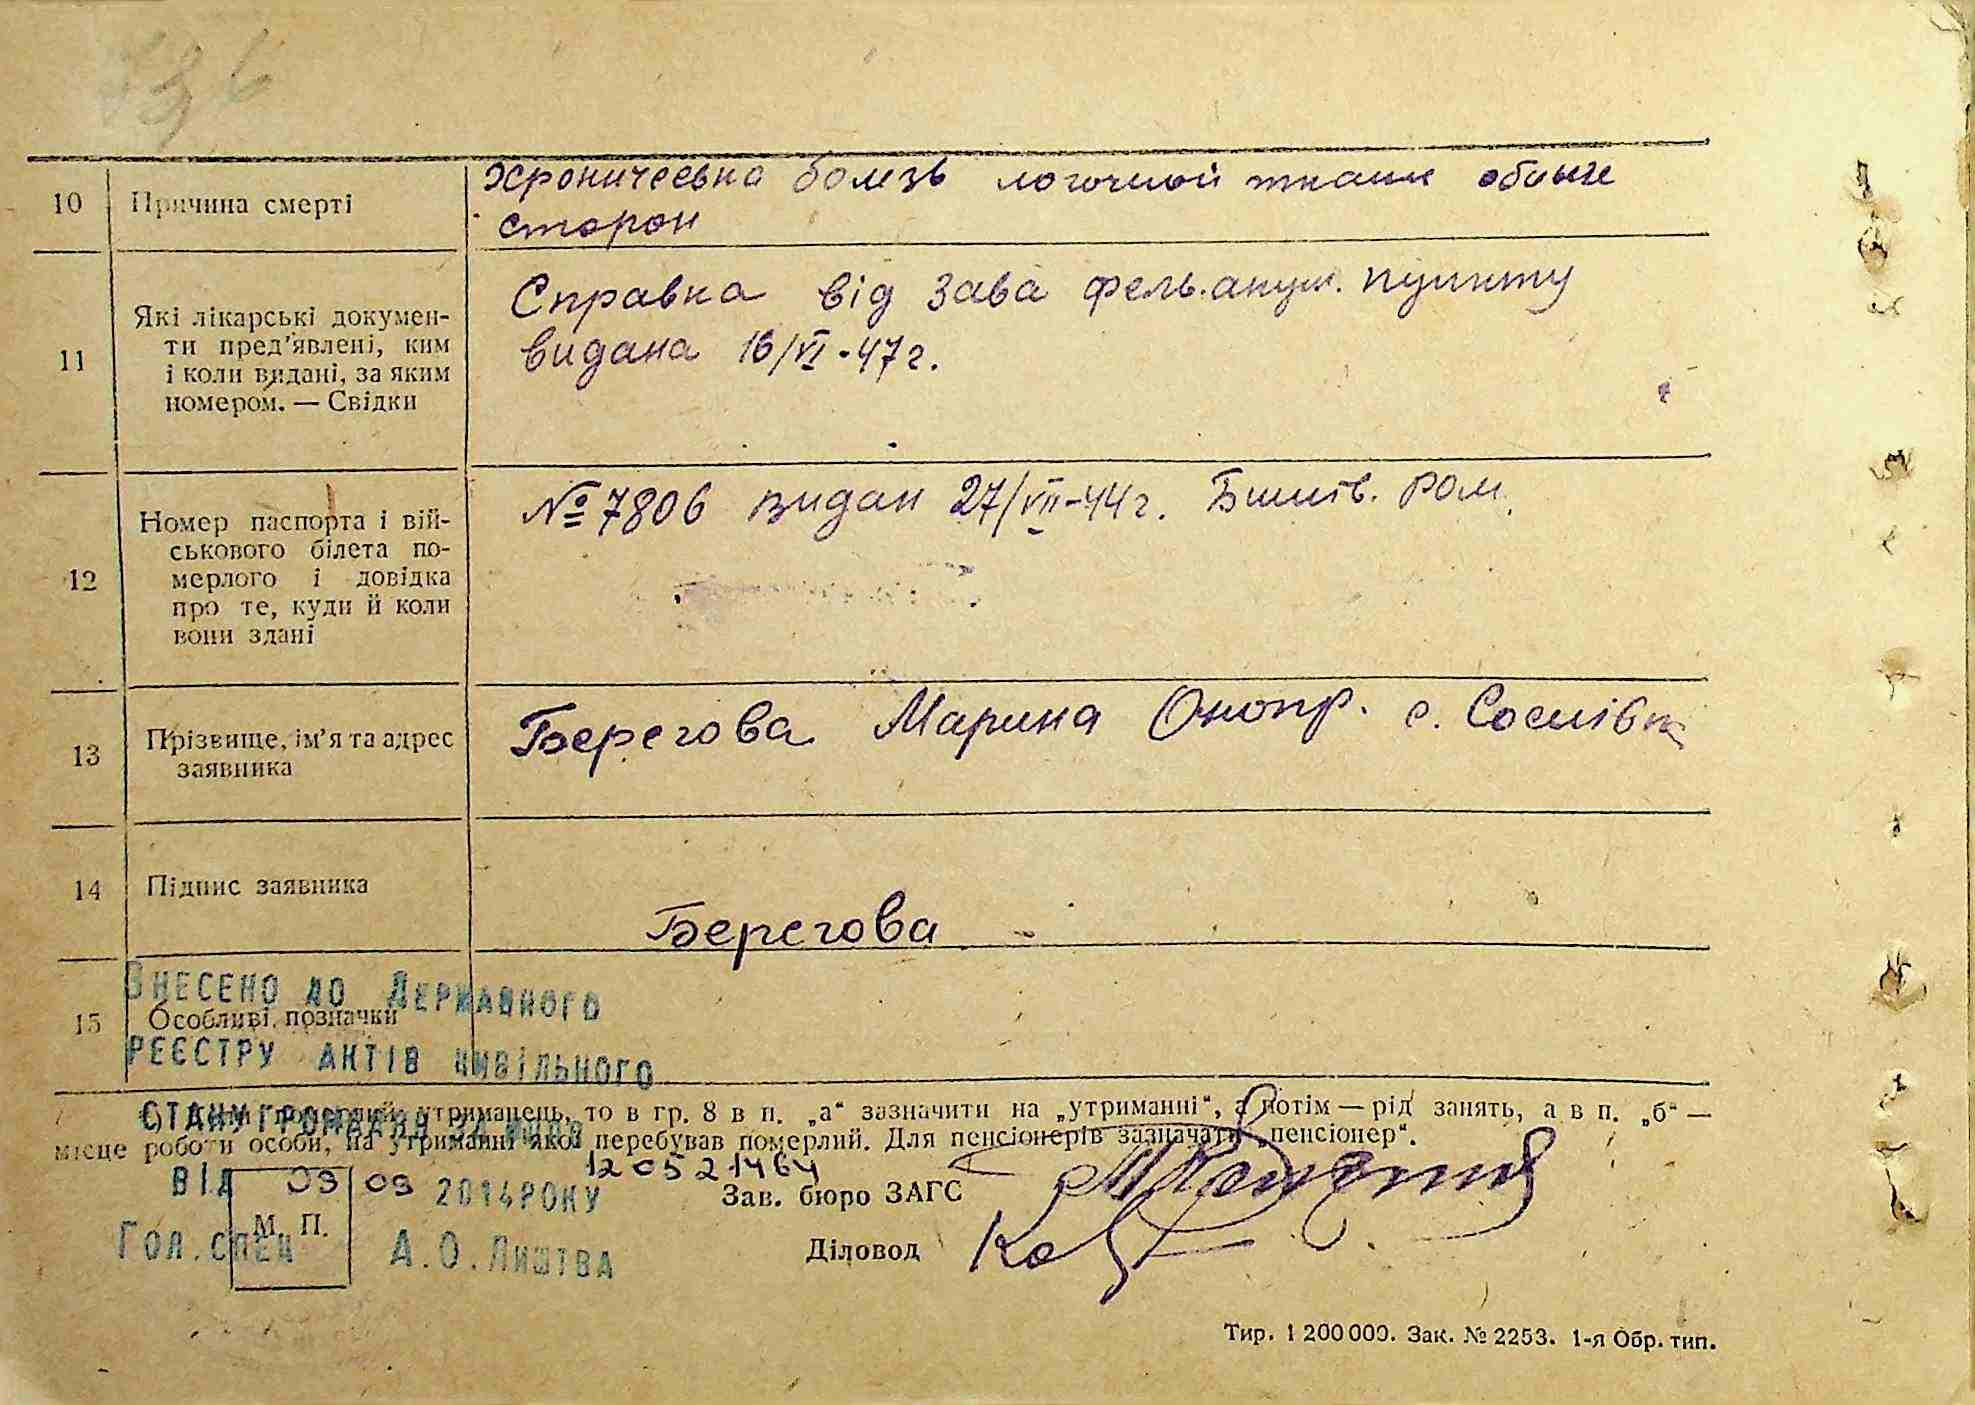 136
10 Причина смерті
Хроничеевна болезв логочной ткани обоих
сторон
11 Які лікарські докумен-
ти пред'явлені, ким
і коли видані, за яким
номером. — Свідки
Справка від Зава фель.акуш. пункту
видана 16/VI-47г.
12 Номер паспорта і вій-
ськового білета по-
мерлого і довідка
про те, куди й коли
вони здані
№ 7806 видан 27/VII-44г. ром.
13 Прізвище, ім'я та адрес
заявника
Берегова Марина Онопр. с. Соснівк
14 Підпис заявника
Берегова
ВНЕСЕНО ДО ДЕРЖАВНОГО
15 Особливі позначки
РЕЄСТРУ АКТІВ ЦИВІЛЬНОГО
СТАНУ ГРОМАДЯН ЗА №
померлий утриманець, то в гр. 8 в п. „а“ зазначити на „утриманні“, а потім — рід занять, а в п. „б“ —
місце роботи особи, на утриманні якої перебував померлий. Для пенсіонерів зазначати „пенсіонер“.
120521464
ВІД 09 09 2014 РОКУ
Зав. бюро ЗАГС
М. П.
ГОЛ. СПЕЦ А.О. ЛИШТВА
Діловод
Тир. 1 200 000. Зак. № 2253. 1-я Обр. тип.